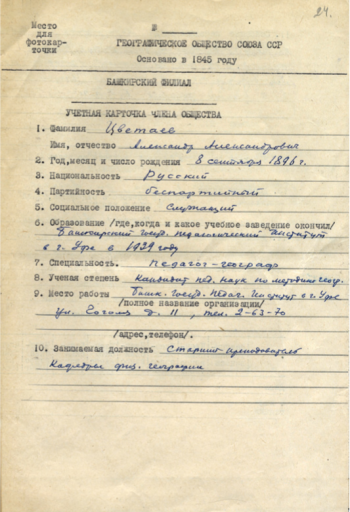 24.
Место
для
фотокар-
точки
№
ГЕОГРАФИЧЕСКОЕ ОБЩЕСТВО СОЮЗА ССР
Основано в 1845 году
БАШКИРСКИЙ ФИЛИАЛ
УЧЕТНАЯ КАРТОЧКА ЧЛЕНА ОБЩЕСТВА
1. Фамилия Цветаев
Имя, отчество Александр Александрович
2. Год, месяц и число рождения 8 сентября 1896 г.
3. Национальность Русский
4. Партийность беспартийный
5. Социальное положение Служащий
6. Образование /где, когда и какое учебное заведение окончил/
Башкирский Госуд. педагогический институт
в г. Уфе в 1939 году
7. Специальность. Педагог-географ
8. Ученая степень Кандидат пед. наук по методике геогр.
9. Место работы Башк. Госуд. Педаг. Институт в г. Уфе
/полное название организации/
ул. д. 11, тел. 2-63-70
/адрес, телефон/.
10. Занимаемая должность Старший преподаватель
Кафедры физ. географии